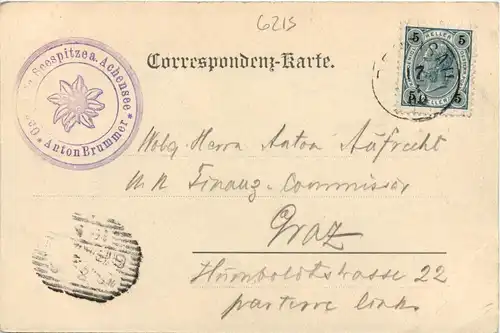 6215
Correspondenz-Karte.
Seespitze a. Achensee
* Anton Brummer *
5 HELLER 5
5 5
Wolg. Herrn Anton Aufrecht
Finanz-Commissär
Graz
Humboldtstrasse 22
parterre links